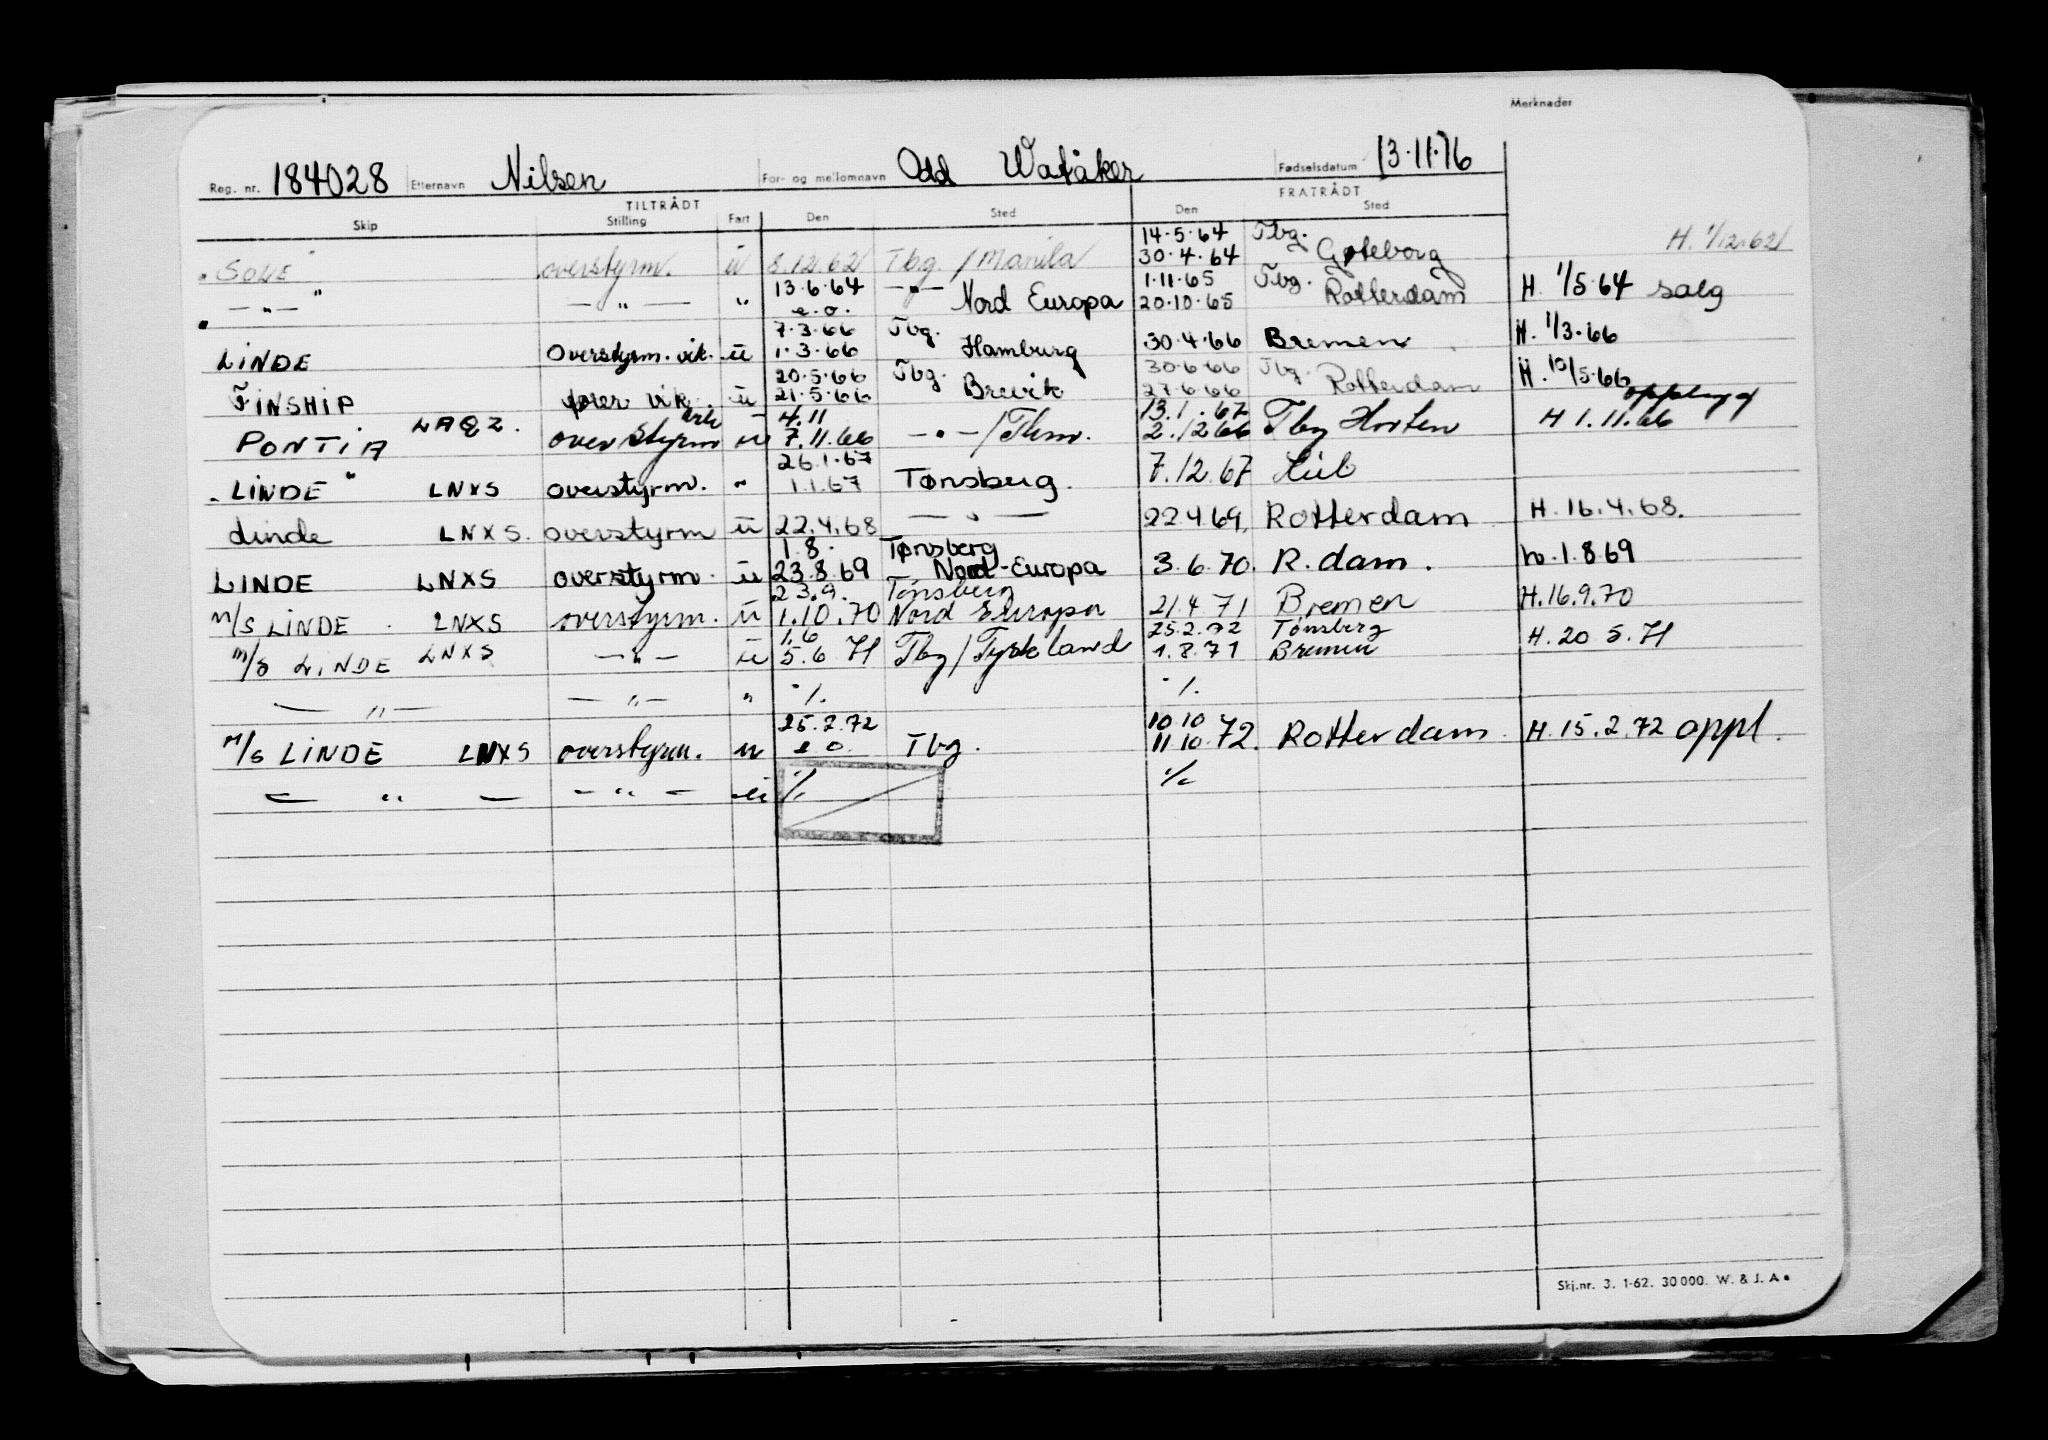 Merknader
Reg. nr. 184028 Etternavn Nilsen For- og mellomnavn Odd Watåker Fødselsdatum 13.11.16
TILTRÅDT FRATRÅDT
Skip Stilling Fart Den Sted Den Sted
14.5.64 Tbg.
overstyrm. ü 8.12.62 Tbg. / Manila 30.4.64 Gøteborg H. 1/12.62
13.6.64 — " — 1.11.65 Tbg.
— " — — " — " e.o. Nord Europa 20.10.65 Rotterdam H. 1/5.64 salg
7.3.66 Tbg.
LINDE Overstyrm. vik. ü 1.3.66 Hamburg 30.4.66 Bremen H. 1/3.66
20.5.66 Tbg. 30.6.66 Tbg.
FINSHIP vik. ü 21.5.66 Brevik 27.6.66 Rotterdam H. 10/5.66
4.11 13.1.67
PONTIA LAQZ. overstyrm ü 7.11.66 — " — / 2.12 66 Tbg Horten H 1.11.66
26.1.67
"LINDE" LNXS overstyrm. " 1.1.67 Tønsberg. 7.12.67
Linde LNXS. overstyrm ü 22.4.68 — " — 22.4.69. Rotterdam H. 16.4.68.
1.8. Tønsberg
LINDE LNXS overstyrm. ü 23.8.69 Nord-Europa 3.6.70. R.dam. h.1.8.69
23.9. Tønsberg
M/S LINDE LNXS overstyrm. ü 1.10.70 Nord Europa 21.4.71 Bremen H.16.9.70
1.6 25.2.72 Tønsberg
M/S LINDE LNXS — " — ü 5.6.71 Tbg / Tyskland 1.8.71 Bremen H. 20 5.71
— " — — " — " ·/. ·/.
25.2.72 10.10
M/S LINDE LNXS overstyrm. u e o. Tbg. 11 10.72. Rotterdam. H. 15.2.72 oppl.
— " — — " — ü ·/. ·/.
Skj.nr. 3. 1-62. 30 000. W. & J. A.